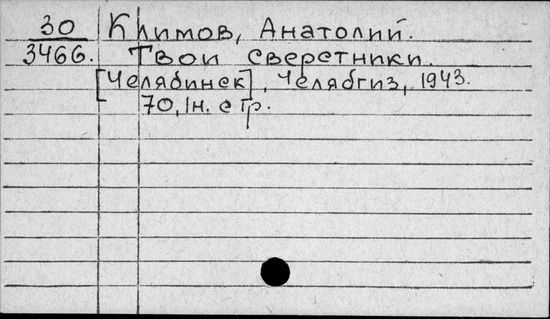 30 Климов, Анатолий.
3466. Твои сверстники.
[Челябинск], Челябгиз, 1943.
70, 1н. стр.